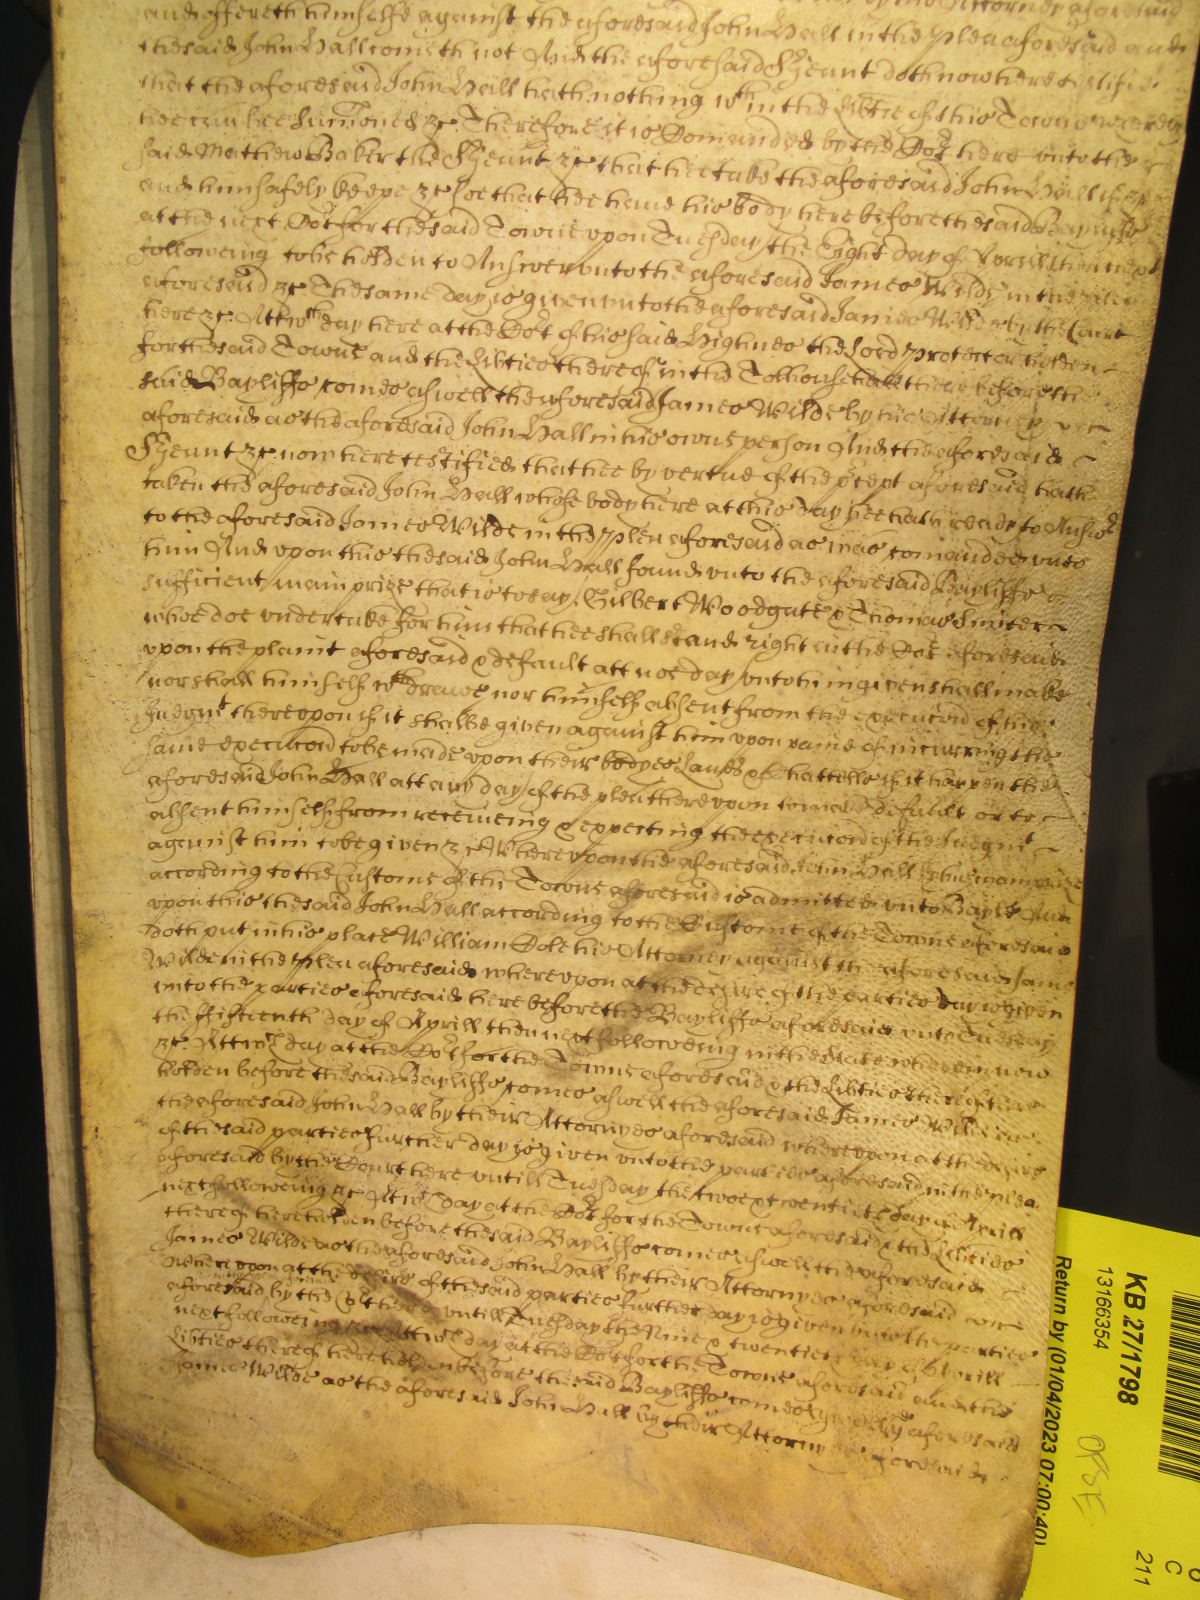 and offereth himselfe against the aforesaid John Hall in the plea aforesaid and
the said John Hall cometh not And the aforesaid Sjeunt doth now here testifie
that the aforesaid John Hall hath nothing wthin the Libtie of this Towne whereby
hee can bee Sumoned &c Therefore it is Comanded by the Cort here unto the
said Mathew Baker the Sjeunt &c that hee take the aforesaid John Hall if &c
and him safely keepe &c soe that hee have his body here before the said Bayliffs
at the next Cort for the said Towne upon Tuesday the Eight day of Aprill then next
followeing to be holden to Answer unto the aforesaid James Wilde in the plea
aforesaid &c The same day is given unto the aforesaid James Wilde by the Court
here &c Att wch day here at the Cort of his said Highnes the Lord Protector holden
for the said Towne and the Libties thereof in the Tolhouse hall there before the
said Bayliffs comes aswell the aforesaid James Wilde by his Attorney
aforesaid as the aforesaid John Hall in his owne person And the aforesaid
Sjeunt &c now here testifies that hee by vertue of the pcept aforesaid hath
taken the aforesaid John Hall whose body here at this day hee hath ready to Answer
to the aforesaid James Wilde in the plea aforesaid as was comanded unto
him And upon this the said John Hall found unto the aforesaid Bayliffs
sufficient mainprize that is to say Gilbert Woodgate & Thomas Smither
who doe undertake for him that hee shall stand right in the Cort aforesaid
upon the plaint aforesaid & default att noe day unto him given shall make
nor shall himself wthdrawe nor himself absent from the execucon of the
Judgmt thereupon if it shalbe given against him upon paine of incurring the
same execucon to be made upon their bodyes Lands & Chattells if it happen the
aforesaid John Hall att any day of the plea thereupon to make default or to
absent himself from receiveing & expecting the execucon of the Judgmt
against him to be given &c Whereupon the aforesaid John Hall by the mainprize
according to the Custome of the Towne aforesaid is admitted unto Bayle And
upon this the said John Hall according to the Custome of the Towne aforesaid
doth put in his place William Cole his Attorney against the aforesaid James
Wilde in the plea aforesaid whereupon at the desire of the parties day is given
unto the parties aforesaid here before the Bayliffs aforesaid unto Tuesday
the fifteenth day of Aprill then next followeing in the state wherein now
&c Att wch day at the Cort for the Towne aforesaid & the Libties thereof here
holden before the said Bayliffs comes aswell the aforesaid James Wilde as
the aforesaid John Hall by their Attornyes aforesaid whereupon at the desire
of the said parties further day is given unto the parties aforesaid in the plea
aforesaid by the Court here untill Tuesday the two & twentieth day of Aprill
next followeing &c At wch day at the Cort for the Towne aforesaid & the Libties
thereof here holden before the said Bayliffs comes aswell the aforesaid
James Wilde as the aforesaid John Hall by their Attornyes aforesaid
Whereupon att the desire of the said parties further day is given unto the parties
aforesaid by the Cort here untill Tuesday the Nine & twentieth day of Aprill
next followeing &c Att wch day at the Cort for the Towne aforesaid and the
Libties thereof here holden before the said Bayliffs comes aswell the aforesaid
James Wilde as the aforesaid John Hall by their Attornyes aforesaid
KB 27/1798
13166354
Return by (01/04/2023 07:00:40)
C
211